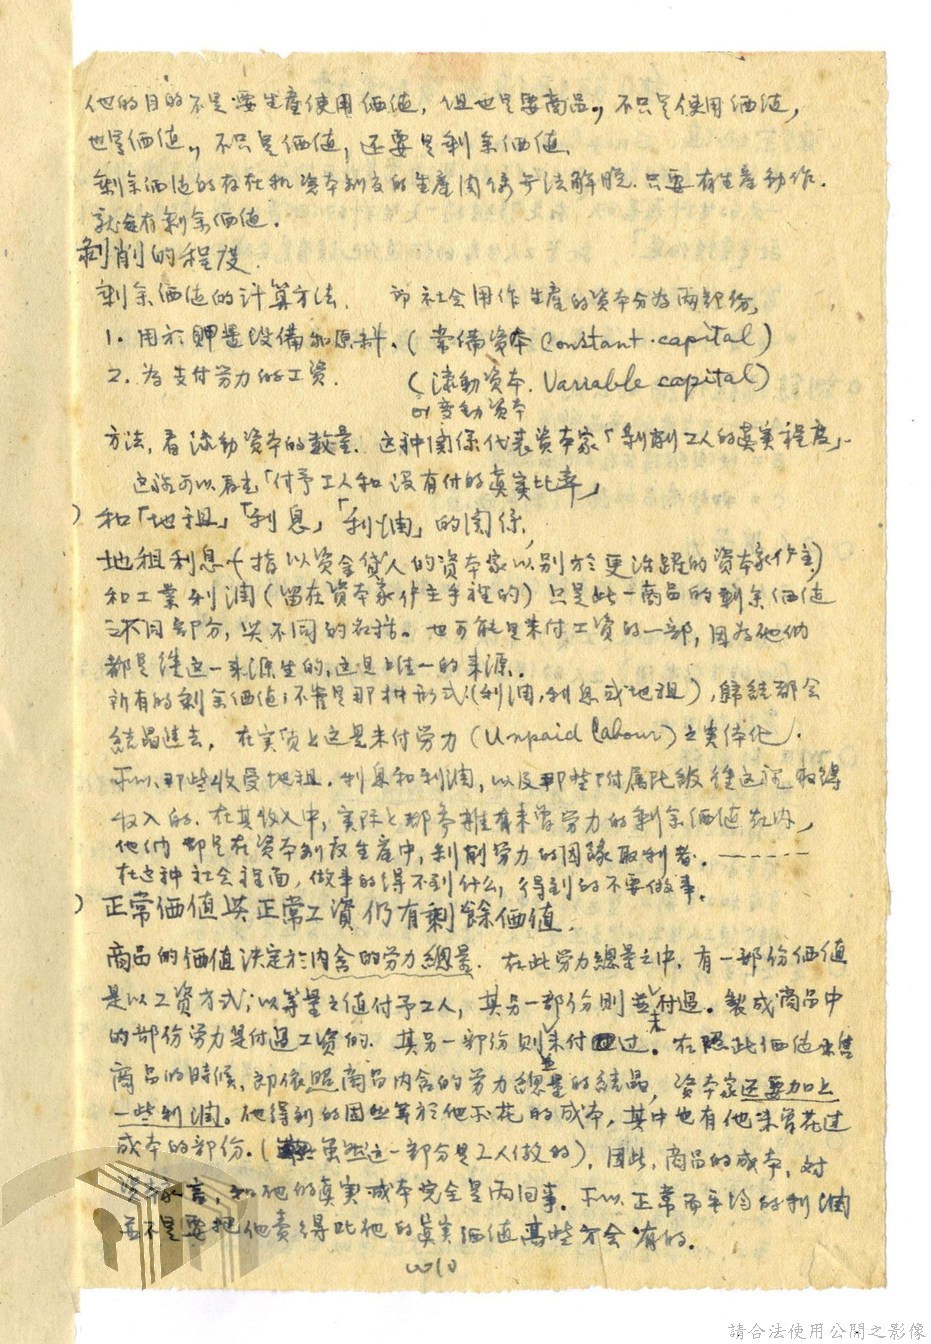 他的目的不是要生產使用価值，但也是要商品，不只是使用価值，
也是価值，不只是価值，还要是剩余価值.
剩余価值的存在和資本制度的生產関係無法解脫. 只要有生產動作.
就会有剩余価值.
剥削的程度.
剩余価值的计算方法. 即社会用作生產的資本分為兩部份,
1. 用於購置设備和原料. (常備資本 Constant capital)
2. 為支付労力的工資. (流動資本. Variable capital)
or 变動資本
方法, 看流動資本的数量. 这种関係代表資本家「剥削工人的真実程度」.
这就可以看出「付予工人和没有付的真実比率」
和「地租」「利息」「利潤」的関係,
地租利息 (指以資金貸人的資本家以別於更活躍的資本家作主)
和工業利潤 (留在資本家作主手裡的) 只是此一商品的剩余価值
之不同部分, 與不同的名稱。也可能是未付工資的一部, 因為他们
都是从这一来源生的, 这是唯一的来源.
所有的剩余価值, 不管是那种形式 (利潤, 利息或地租), 歸結都会
結晶进去, 在実质上这是未付労力 (Unpaid Labour) 之実体化.
所以那些收受地租. 利息和利潤, 以及那些附属阶級从这裡取得
收入的. 在其收入中, 実际上都会有未付労力的剩余価值在内,
他们都是在資本制度生產中, 剥削労力的因緣取利者. ------
在这种社会裡面, 做事的得不到什么, 得到的不要做事.
正常価值与正常工資仍有剩餘価值.
商品的価值决定於内含的労力總量. 在此労力總量之中, 有一部份価值
是以工資方式; 以等量之值付予工人, 其另一部份則並未付過. 製成商品中
的部份労力是付過工資的. 其另一部份則並未付过. 在照此価值出售
商品的時候, 即依照商品内含的労力總量的結晶, 資本家还要加上
一些利潤. 他得到的因此等於他所花的成本, 其中也有他未曾花过
成本的部份. (雖然这一部分是工人做的), 因此, 商品的成本, 対
資本家言, 和他的真実成本完全是両回事. 所以正常而平均的利潤
並不是要把他賣得比他的真実価值高些方会有的.